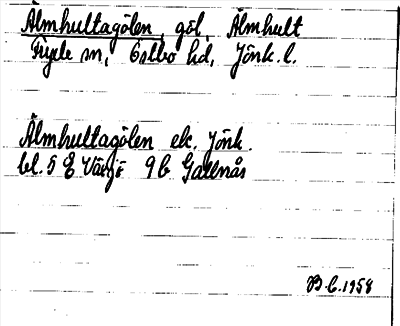 Älmhultagölen, göl, Älmhult
Fryele sn, Östbo hd, Jönk. l.
Älmhultagölen ek. Jönk.
bl. 5 E Växjö 9 b Gällnås
B.C. 1958